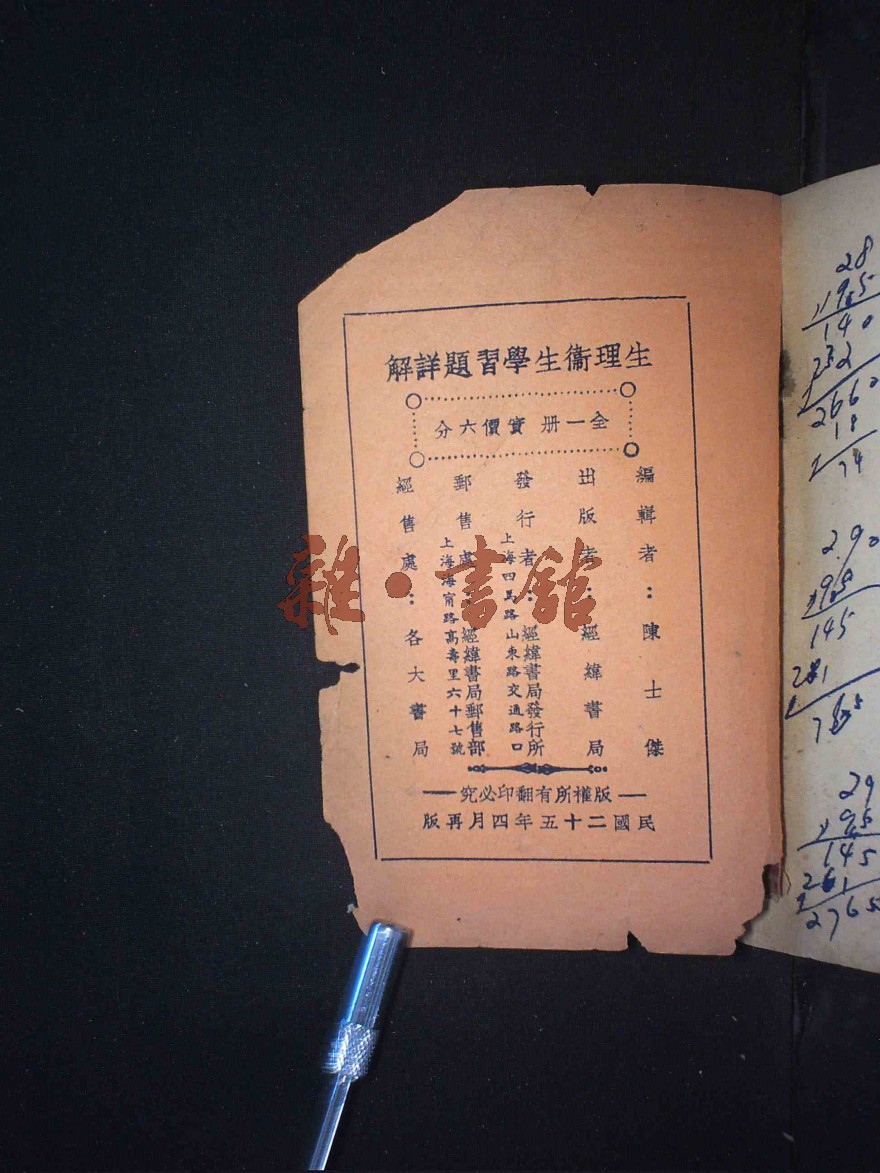 生理衞生學習題詳解
全一册 實價六分
編輯者：陳士傑
出版者：經緯書局
發行者：經緯書局發行所
上海四馬路山東路交通路口
郵售處：經緯書局郵售部
上海海甯路高壽里六十七號
經售處：各大書局
版權所有翻印必究
民國二十五年四月再版
雜·書館
28
140
2660
18
74
290
145
29
95
145
261
2765